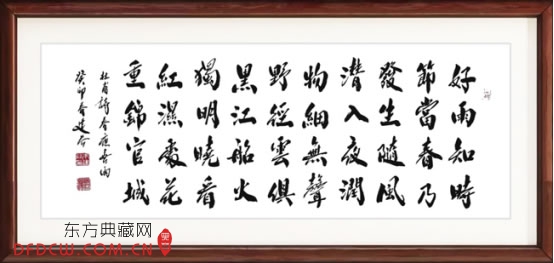 好雨知時
節當春乃
發生隨風
潛入夜潤
物細無聲
野徑雲俱
黑江船火
獨明曉看
紅濕處花
重錦官城
杜甫詩春夜喜雨
癸卯春建
东方典藏网
DFDCW.COM.CN